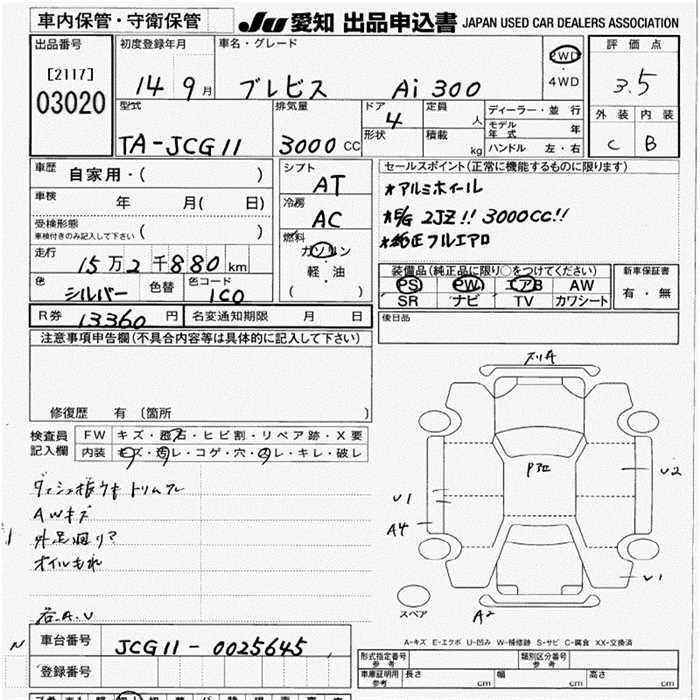 車内保管・守衛保管
JU 愛知 出品申込書 JAPAN USED CAR DEALERS ASSOCIATION
出品番号
[2117]
03020
初度登録年月
14 9月
車名・グレード
ブレビス Ai 300
2WD
・
4WD
評価点
3.5
外装 内装
C B
型式
TA-JCG11
排気量
3000cc
ドア
4
形状
定員
人
積載
kg
ディーラー・並行
モデル年式 年
ハンドル 左・右
車歴
自家用・( )
車検
年 月( 日)
受検形態
車検付きのみ記入して下さい ( )
走行
15万2千880km
色
シルバー
色替
色コード
1C0
シフト
AT
冷房
AC
燃料
ガソリン
軽・油
( )
セールスポイント(正常に機能するものに限ります)
*アルミホイール
*E/G 2JZ!! 3000CC!!
*純正フルエアロ
装備品(純正品に限り○をつけてください)
PS PW エアB AW
SR ナビ TV カワシート
新車保証書
有・無
R券 13360円
名変通知期限 月 日
後日品
注意事項申告欄(不具合内容等は具体的に記入して下さい)
修復歴 有(箇所 )
検査員
記入欄
FW キズ・飛石・ヒビ割・リペア跡・X要
内装 キズ・汚レ・コゲ・穴・スレ・キレ・破レ
AWキズ
オイルもれ
A4
U1
U2
U1
A2
スペア
A-キズ E-エクボ U-凹み W-補修跡 S-サビ C-腐食 XX-交換済
N
車台番号
JCG11-0025645
登録番号
形式指定番号
参考
類別区分番号
参考
車庫証明用
参考
長さ cm 幅 cm 高さ cm